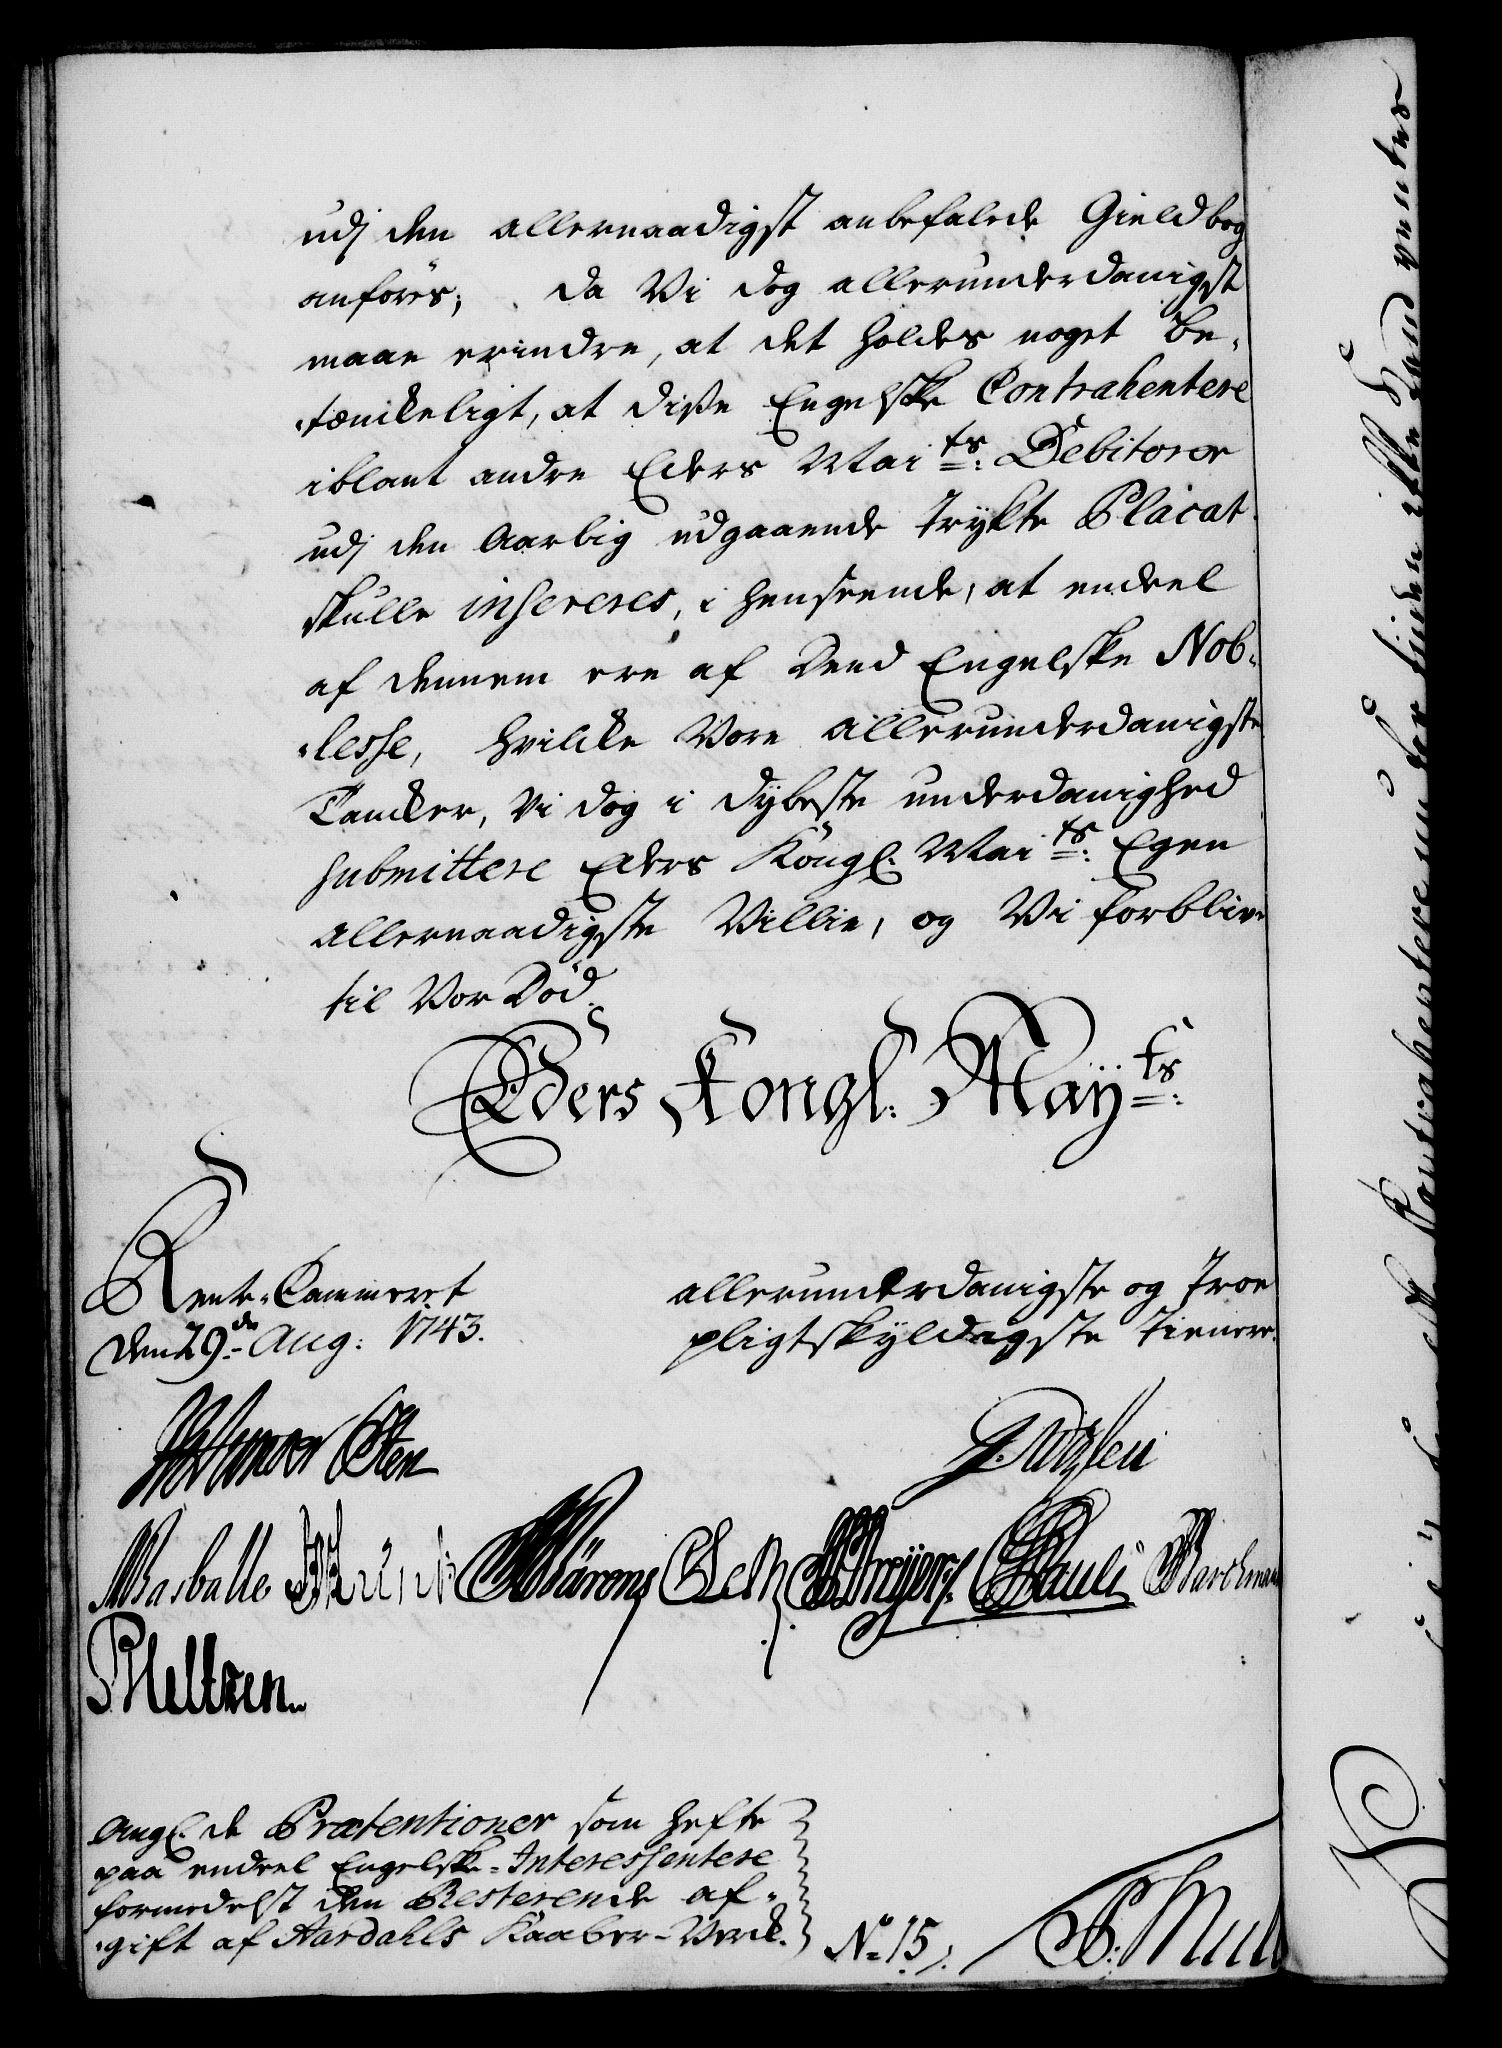 udj den allernaadigst anbefalede Gieldbog
anföres; da Vi dog allerunderdanigst
maae erindre, at det holdes noget be„
„tænckeligt, at diße Engelske Contrahentere
iblant andre Eders Mai ts: Debitorer
udj den Aarlig udgaaende trykte Placat
skulle insereres, i henseende, at endeel
af dennem ere af Deed Engelske Nob„
„lesse, hvilcke Vore allerunderdanigste
Tancker, Vi dog i dybeste underdanighed
submittere Eders Kongl. Mai ts: Egen
allernaadigste Villie, og Vi forblive
til Vor Död.
Eders Kongl: Maÿ ts:
Rente-Cammeret
den 29 de Aug: 1743.
allerunderdanigste og troe
pligtskÿldigste tienere.
Osten
Wasballe
Pauli
Barchman
PHeltzen
Angl. de Prætentioner som hefte
paa endeel Engelske-Interessentere
formedelst den Resterende af„
„gift af Aardahls Kaaber-Verck.
No 15.
Contrahentere